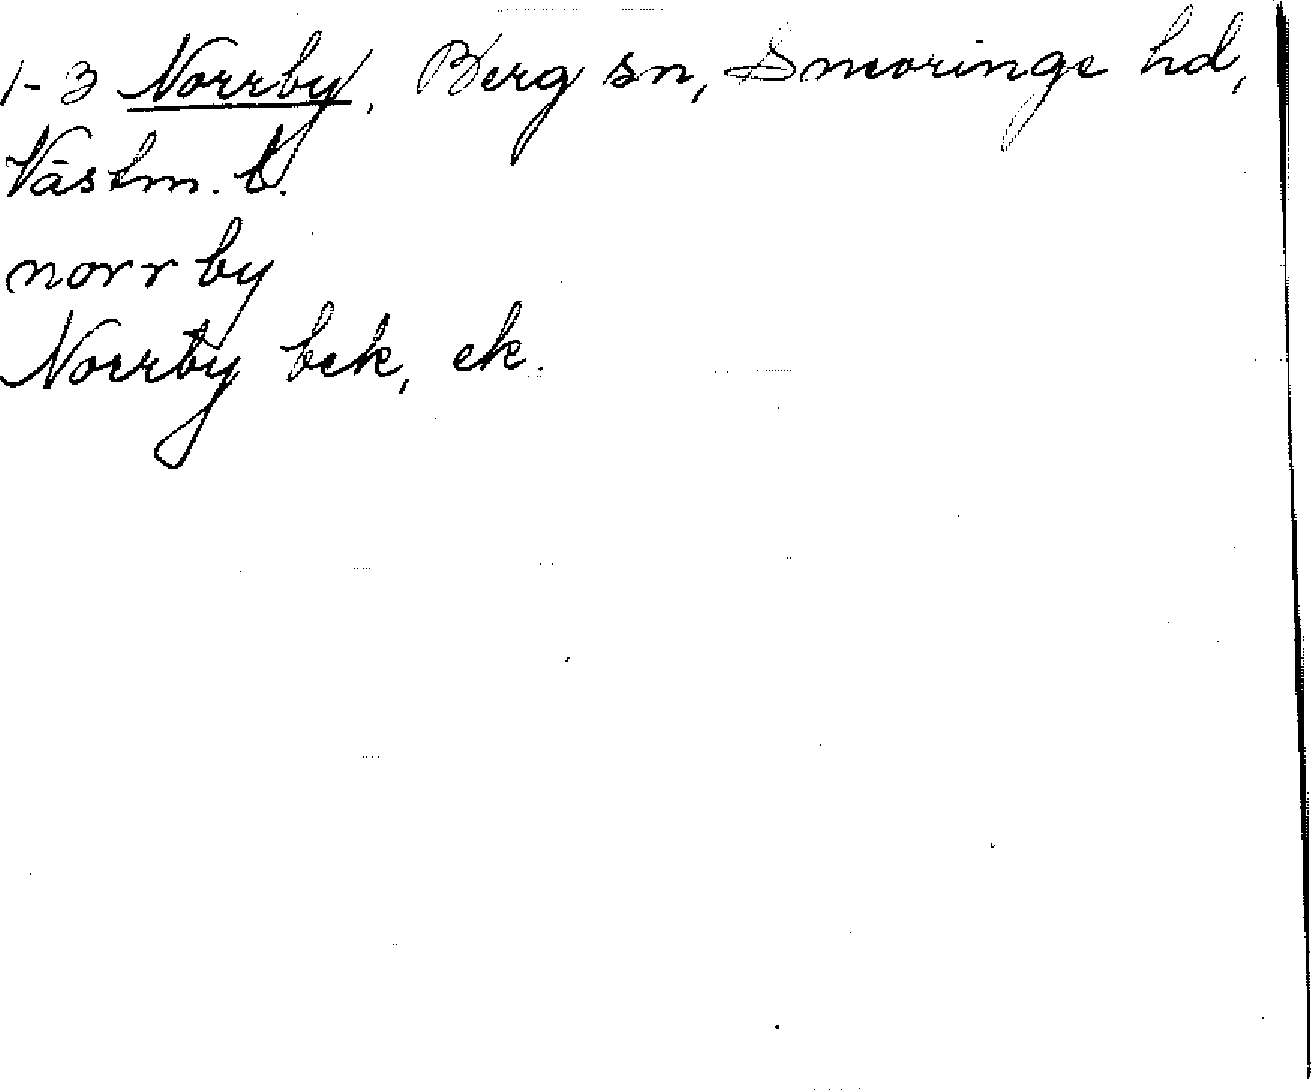 1-3 Norrby, Berg sn, Snevringe hd,
Västm. l.
norrby
Norrby bek, ek.